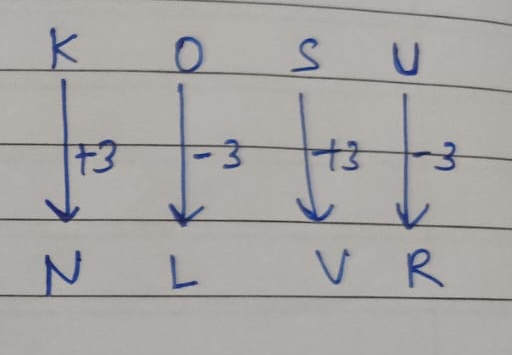 K O S U
+3 -3 +3 -3
N L V R